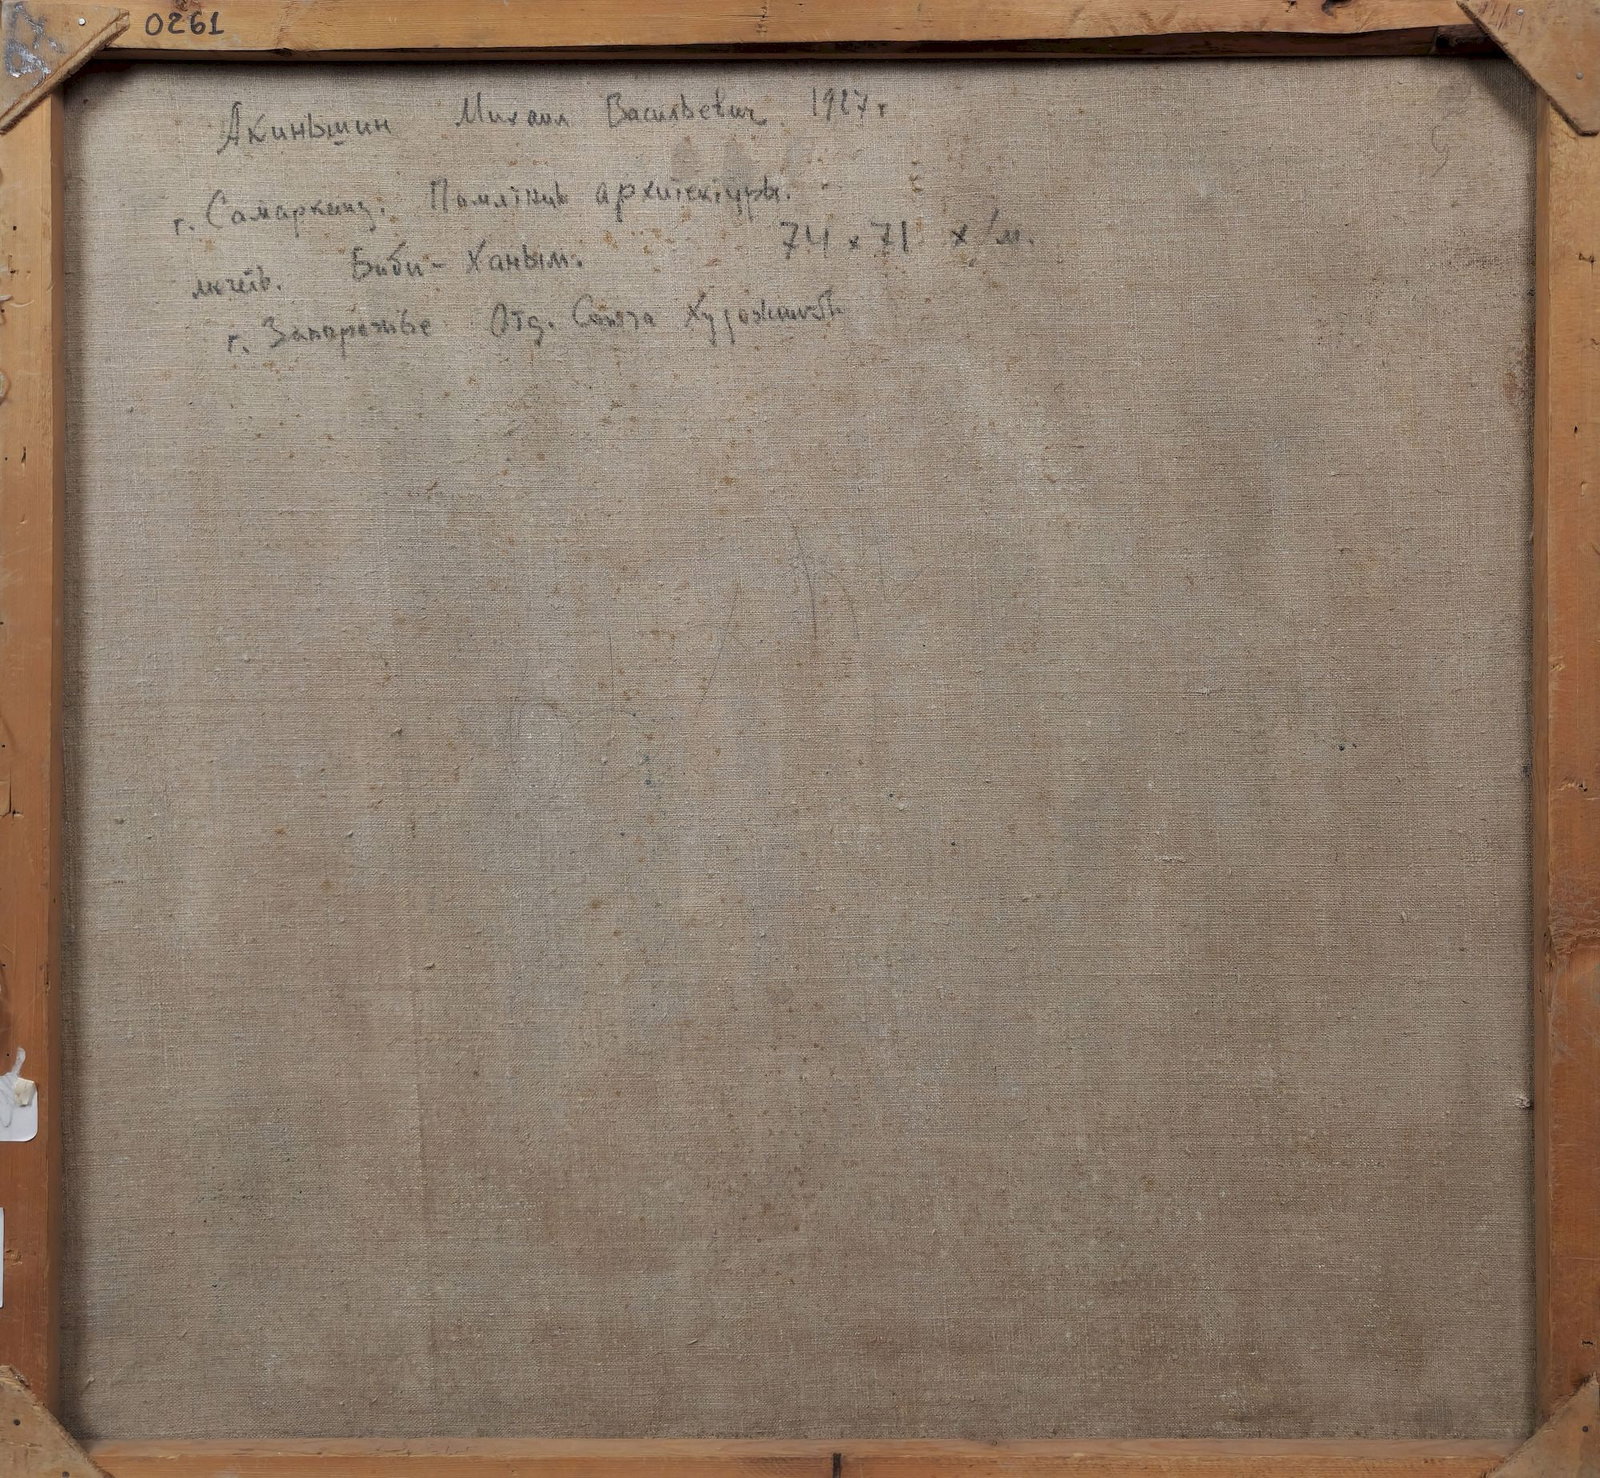 0261
Акиньшин Михаил Васильевич 1927г
г. Самарканд. Памятник архитектуры.
74 x 71 х/м.
мечеть. Биби-Ханым.
г. Запорожье Отд. Союза Художников